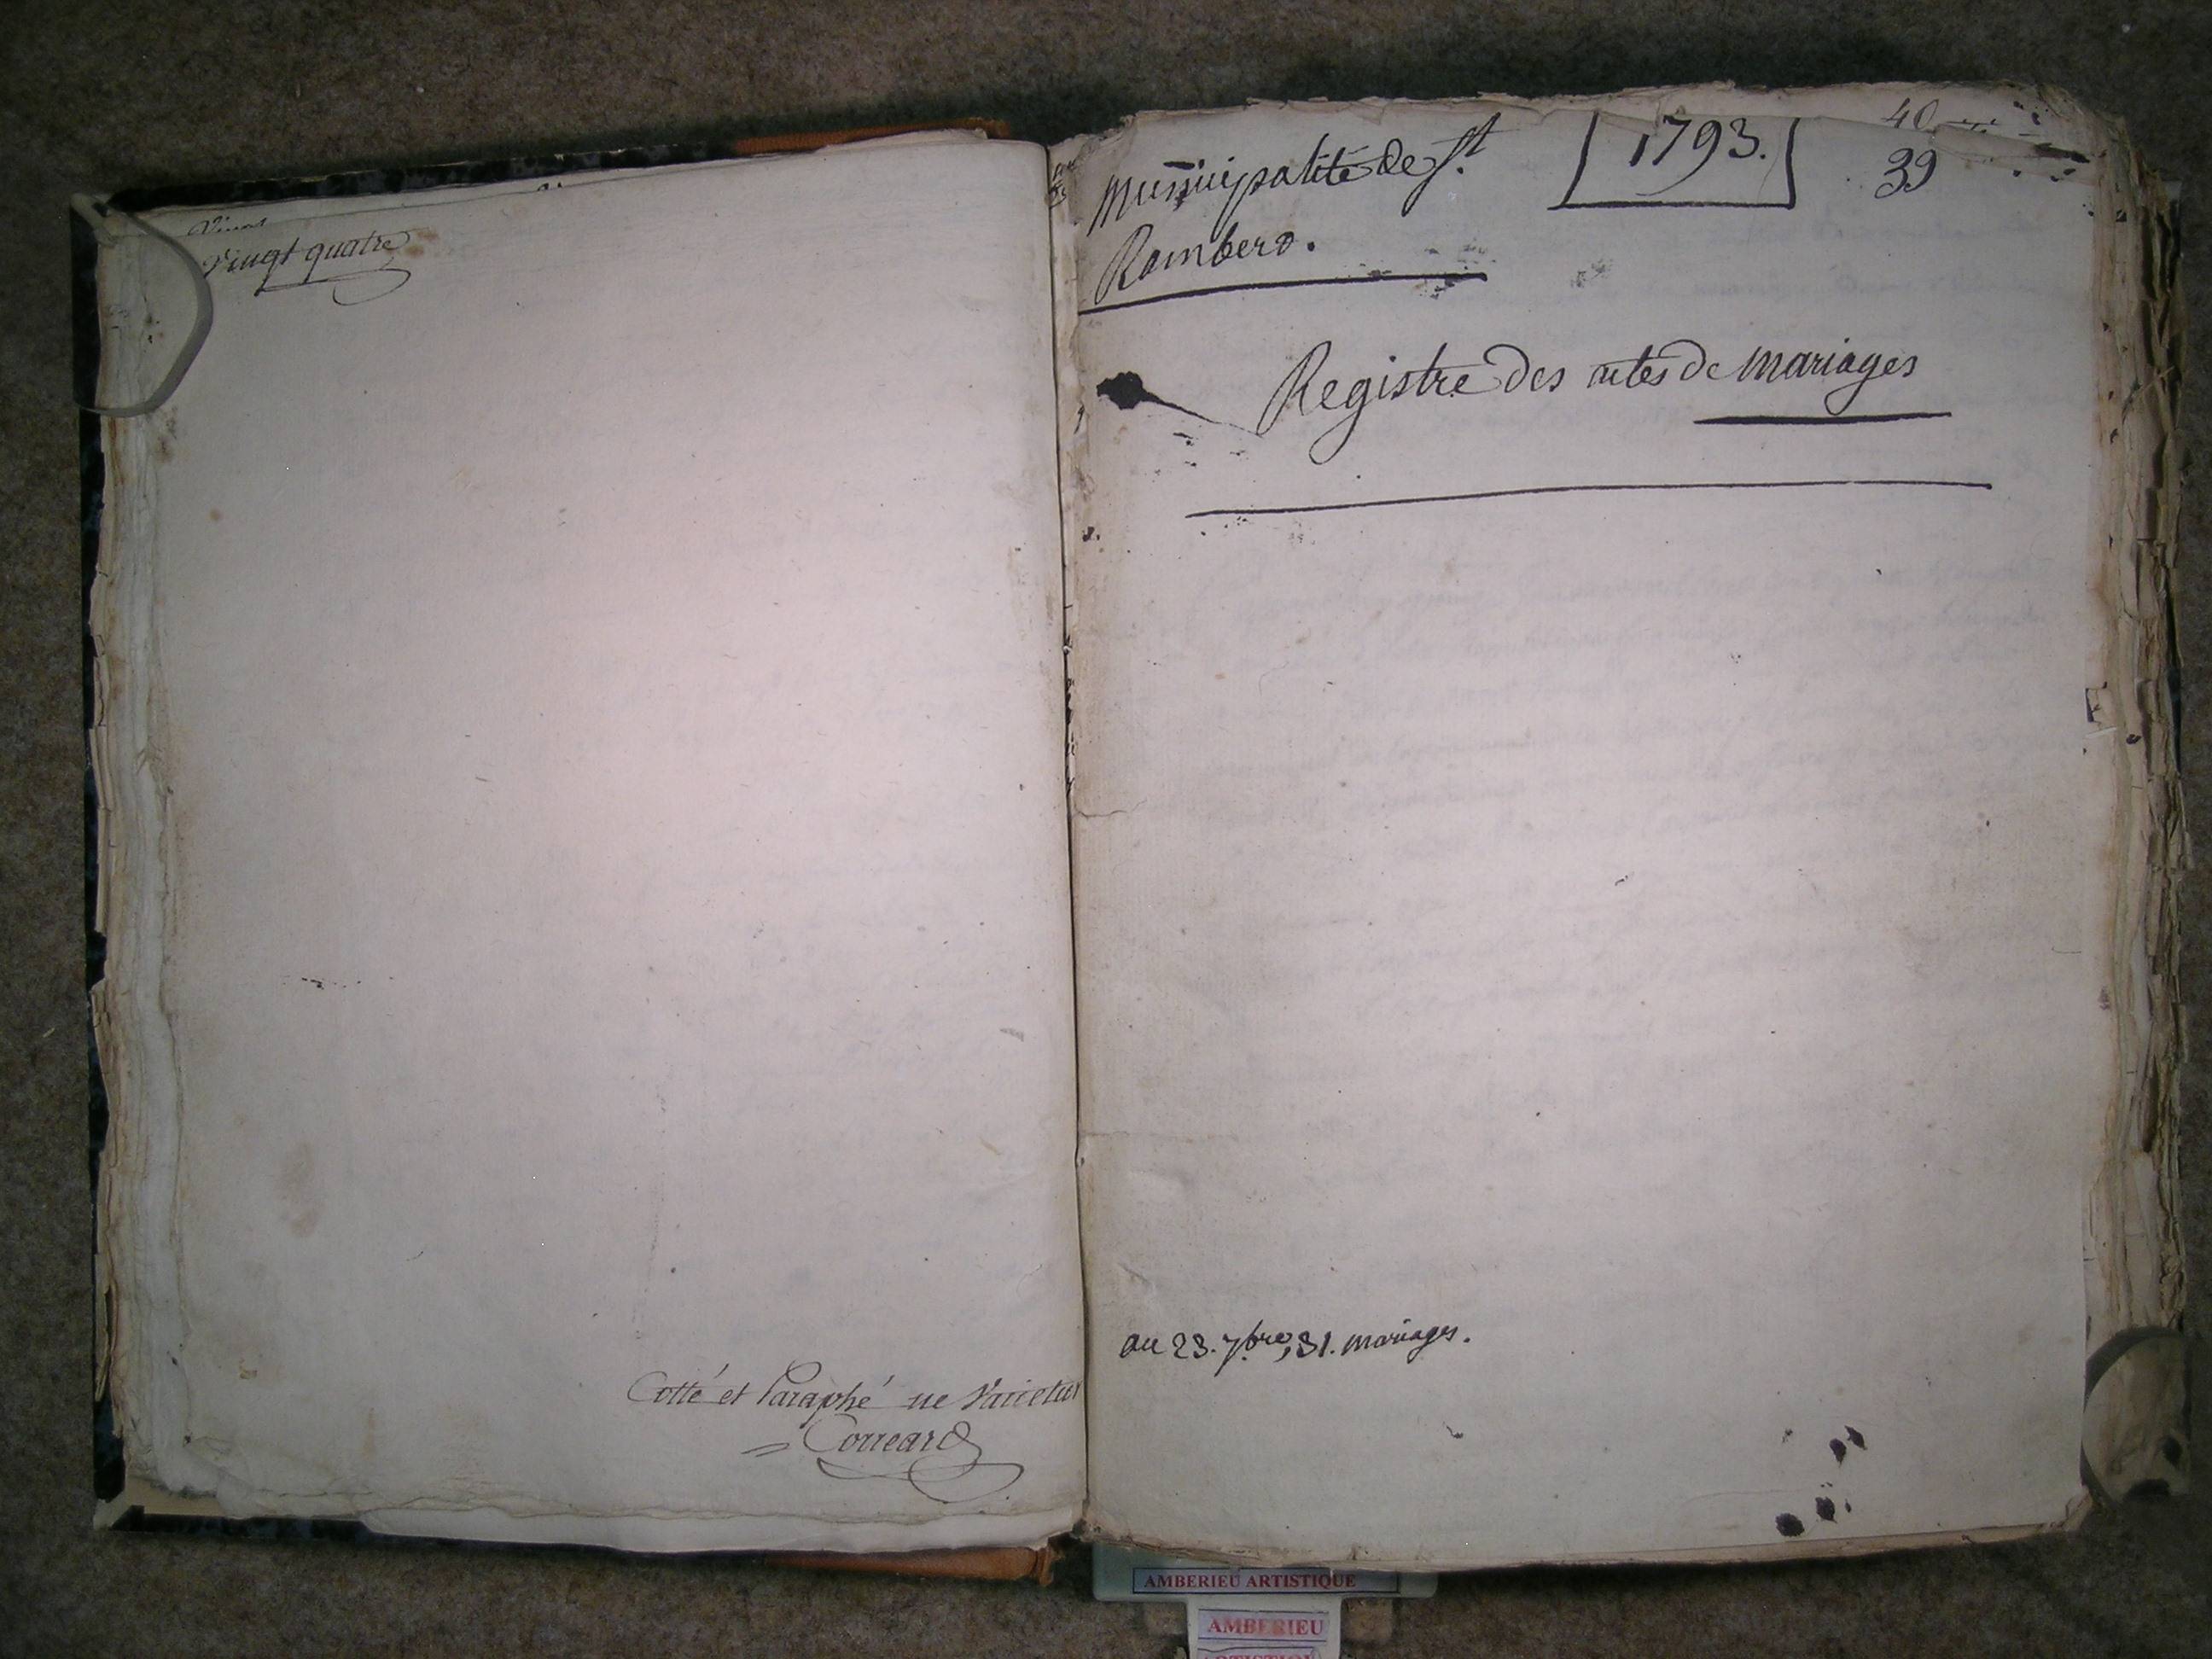 Vingt quatre
Cotté et Paraphé ne Varietur
Municipalité de St.
Rambert.
1793.
40
39
Registre des actes de mariages
au 23. 7bre, 31. mariages.
AMBERIEU ARTISTIQUE
AMBERIEU
ARTISTIQUE